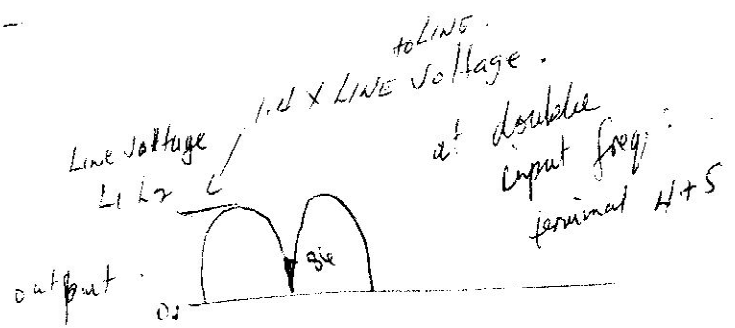 to LINE.
1.4 X LINE Voltage.
Line Voltage
L1 L2
at double
input freq:
terminal 4+5
output.